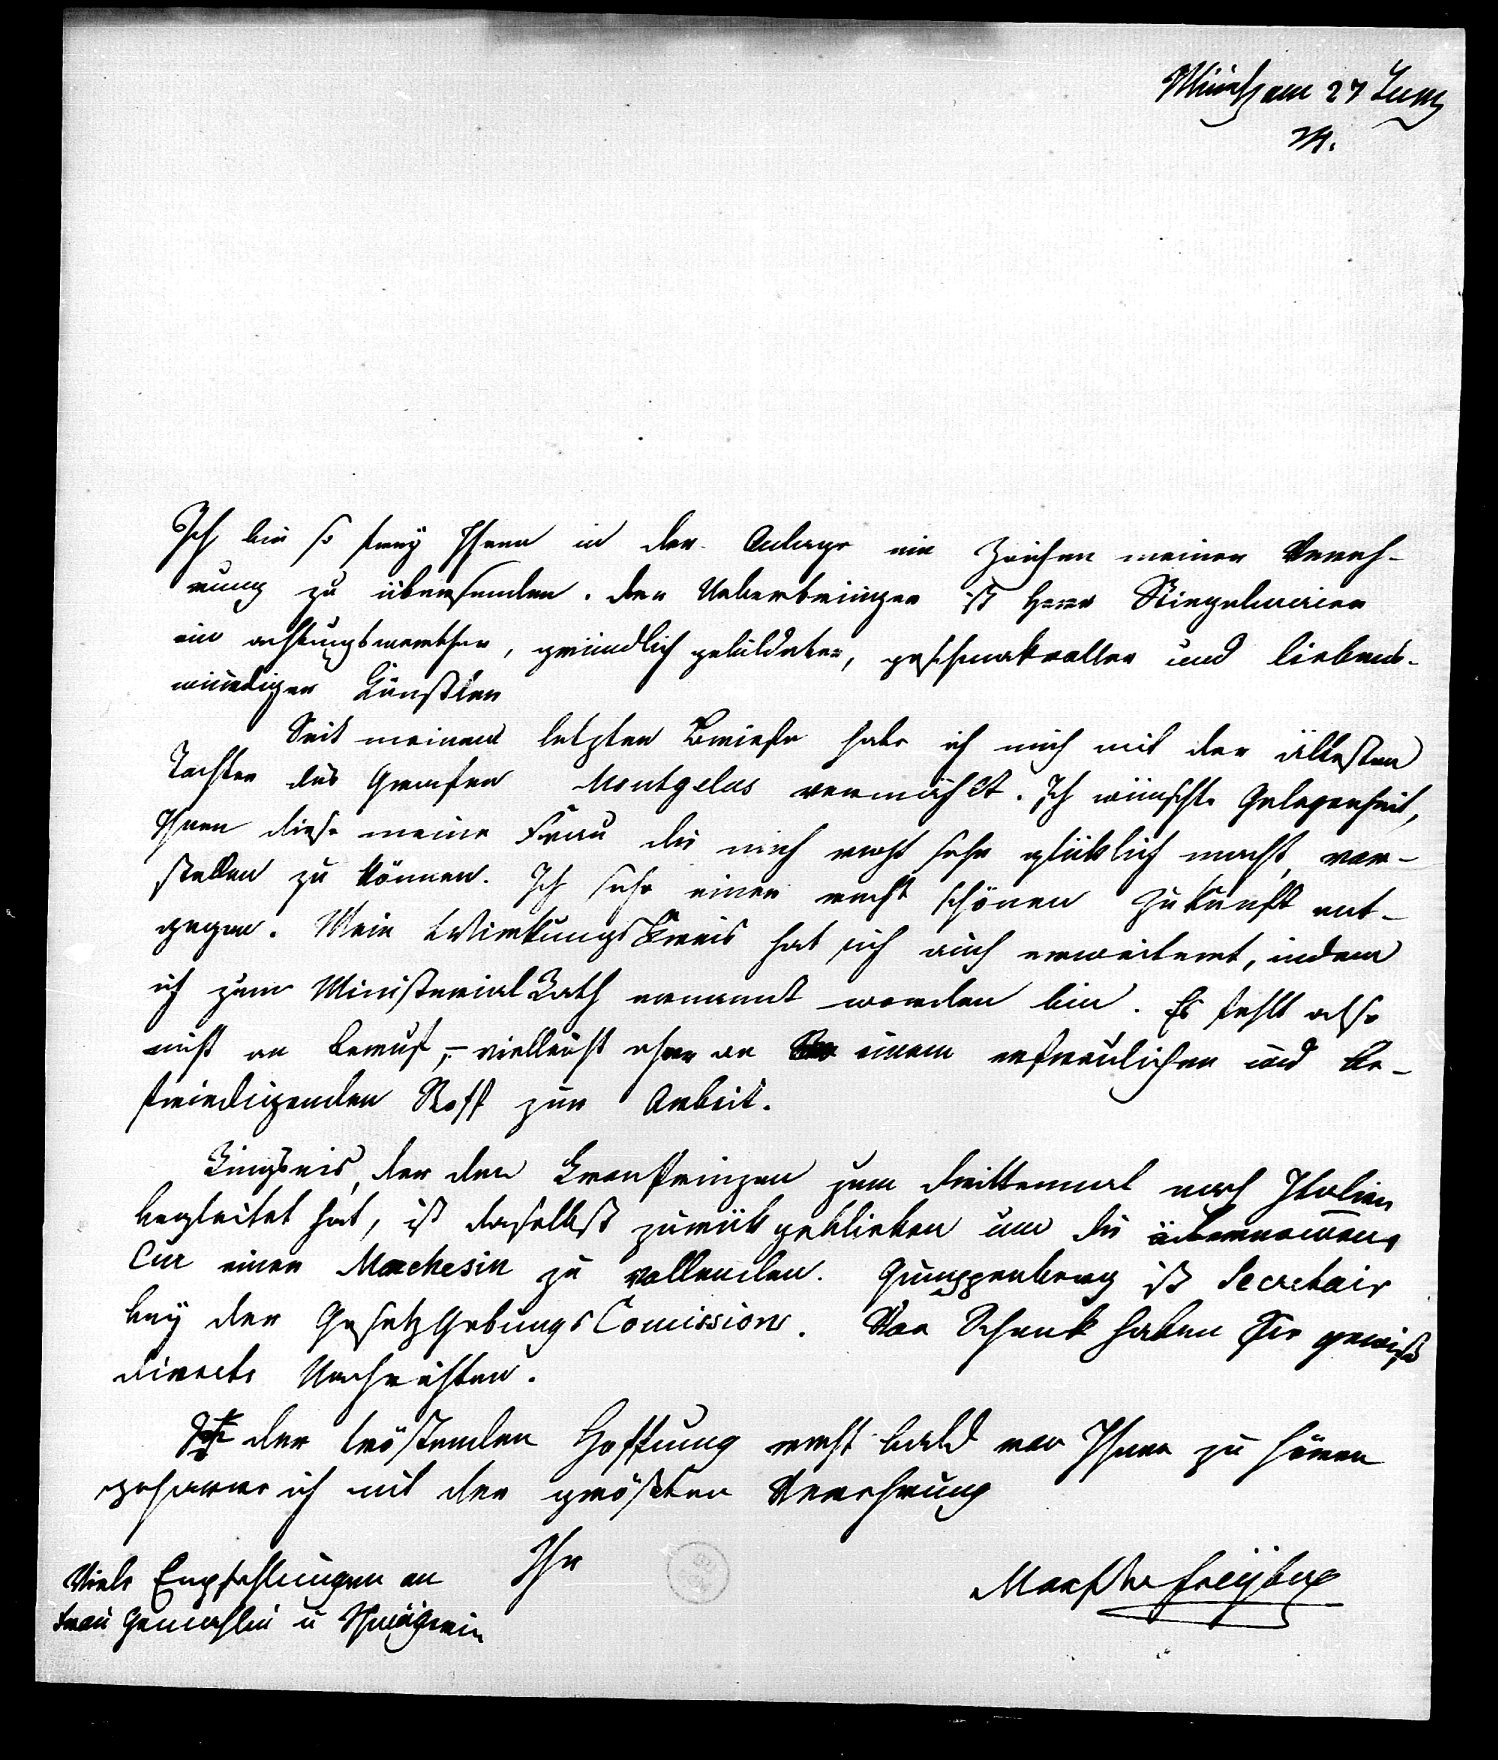 Münch am 27 Juny
24.
Ich bin so frey Ihnen in der Anlage ein Zeichen meiner Vereh-
rung zu übersenden. Der Ueberbringer ist Herr Stiegelmaier
ein achtungswerther, gründlich gebildeter, geschmakvoller und liebens-
würdiger Künstler
Seit meinem letzten Briefe habe ich mich mit der ältesten
Tochter des Grafen Montgelas vermählt. Ich wünschte Gelegenheit,
Ihnen diese meine Frau die mich recht sehr glüklich macht, vor-
stellen zu können. Ich sehe einer recht schönen Zukunft ent-
gegen. Mein WirkungsKreis hat sich auch erweitert, indem
ich zum MinisterialRath ernannt worden bin. Es fehlt also
nicht an Beruf, – vielleicht eher an einem erfreulichen und be-
friedigenden Stoff zur Arbeit.
Ringseis, der den Kronprinzen zum drittenmal nach Italien
begleitet hat, ist daselbst zurük geblieben um die übernommene
Cur einer Marchesin zu vollenden. Gumppenberg ist Secretair
bey der GesetzGebungsComission. Von Schenk haben Sie gewiß
directe Nachrichten.
der tröstenden Hoffnung recht bald von Ihnen zu hören
geharre ich mit der größten Verehrung
Ihr
Viele Empfehlungen an
Frau Gemahlin u Schwägerin
Max Fhr Freyberg